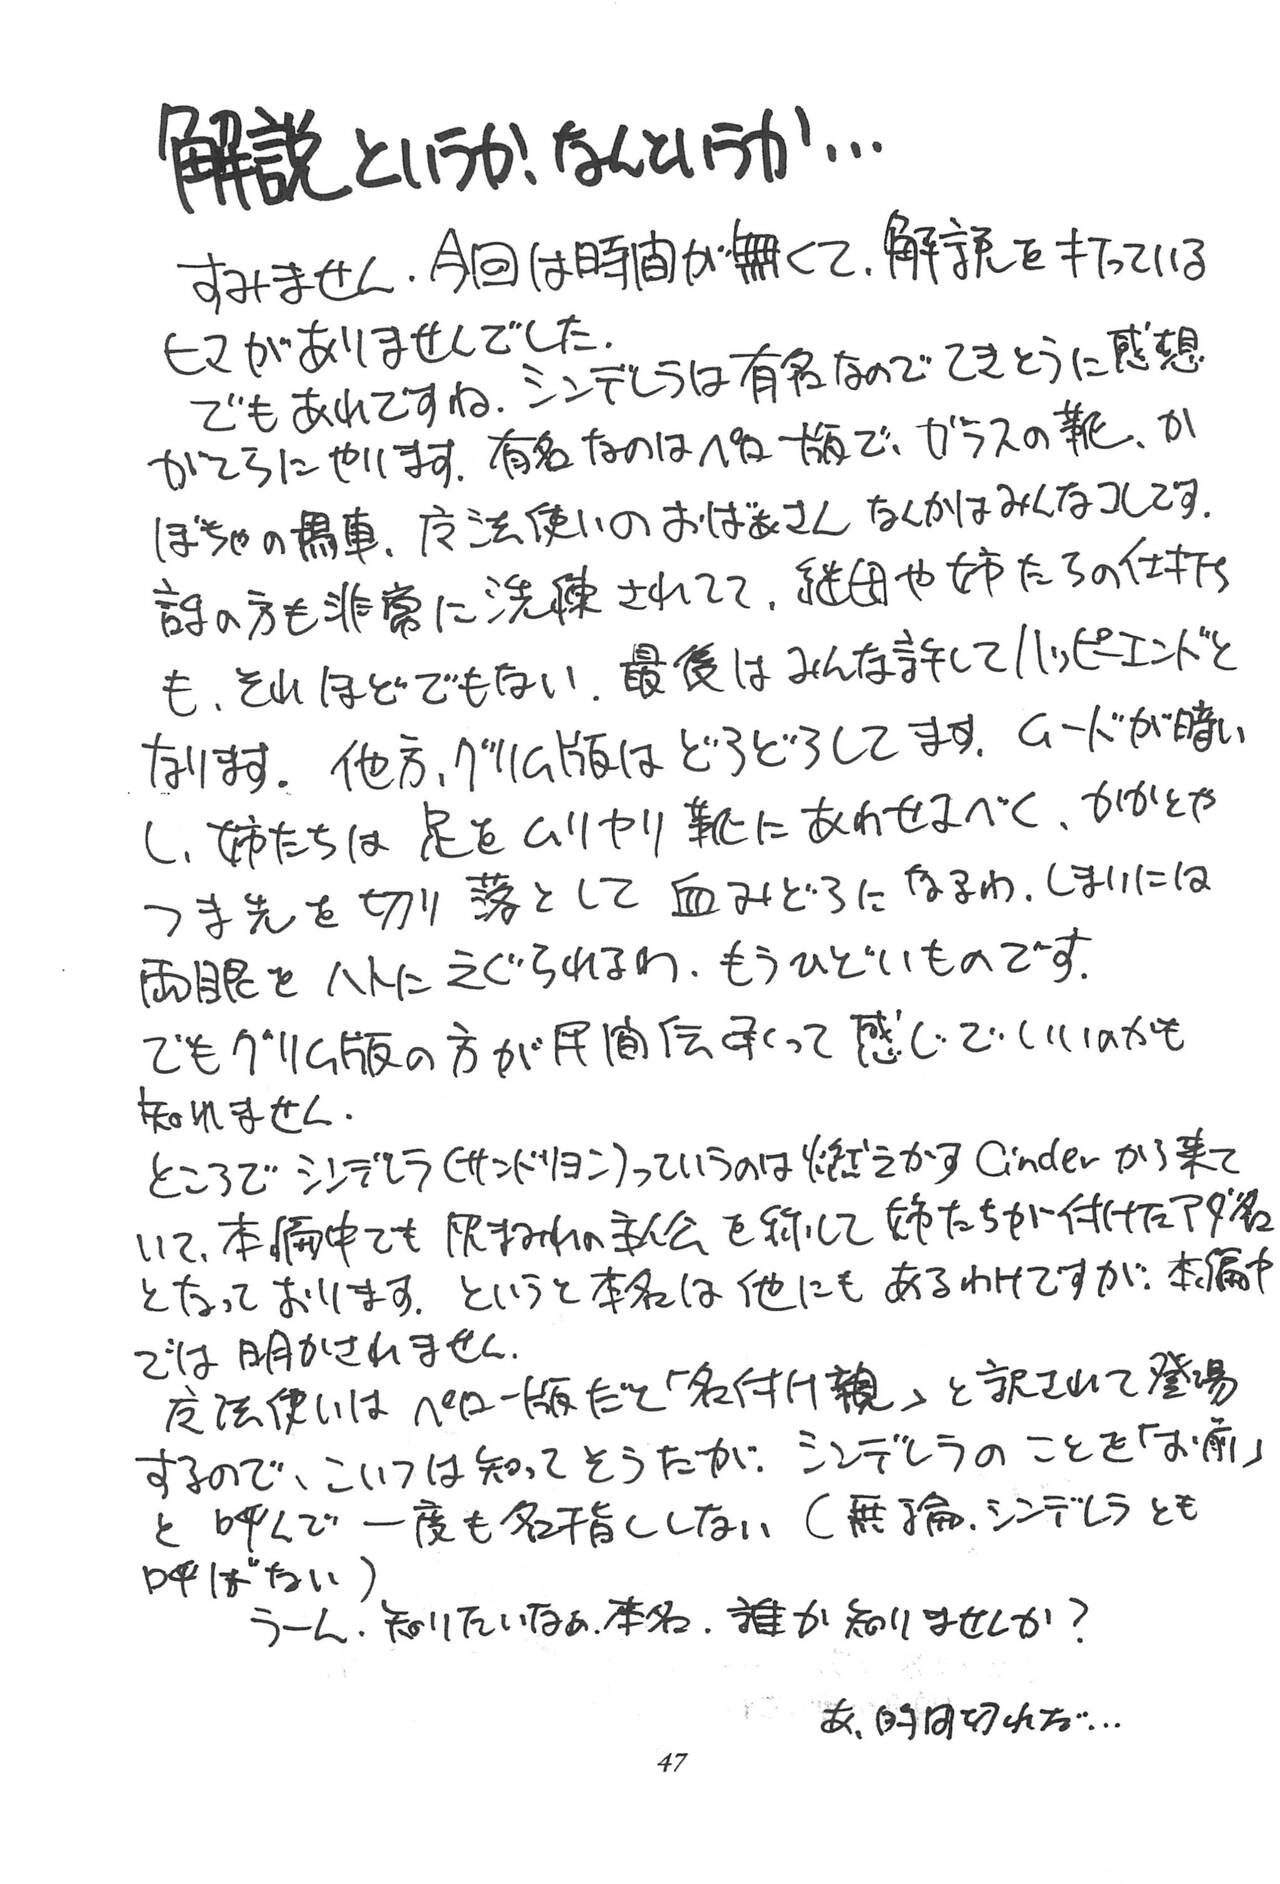 解説というか、なんというか…
すみません。今回は時間が無くて、解説を打っている
ヒマがありませんでした。
でもあれですね。シンデレラは有名なのでてきとうに感想
がてらにやります。有名なのはペロー版で、ガラスの靴、か
ぼちゃの馬車、魔法使いのおばぁさんなんかはみんなコレです。
話の方も非常に洗練されてて、継母や姉たちの仕打ち
も、それほどでもない。最後はみんな許してハッピーエンドと
なります。他方、グリム版はどろどろしてます。ムードが暗い
し、姉たちは足をムリヤリ靴にあわせるべく、かかとや
つま先を切り落として血みどろになるわ、しまいには
両眼をハトにえぐられるわ、もうひどいものです。
でもグリム版の方が民間伝承って感じでいいのかも
知れません。
ところでシンデレラ(サンドリヨン)っていうのは燃えかすCinderから来て
いて、本編中でも灰まみれの主人公を称して姉たちが付けたアダ名
となっております。というと本名は他にもあるわけですが、本編中
では明かされません。
魔法使いはペロー版だと「名付け親」と訳されて登場
するので、こいつは知ってそうだが、シンデレラのことを「お前」
と呼んで一度も名指ししない(無論、シンデレラとも
呼ばない)
うーん、知りたいなぁ、本名。誰か知りませんか？
あ、時間切れだ…
47